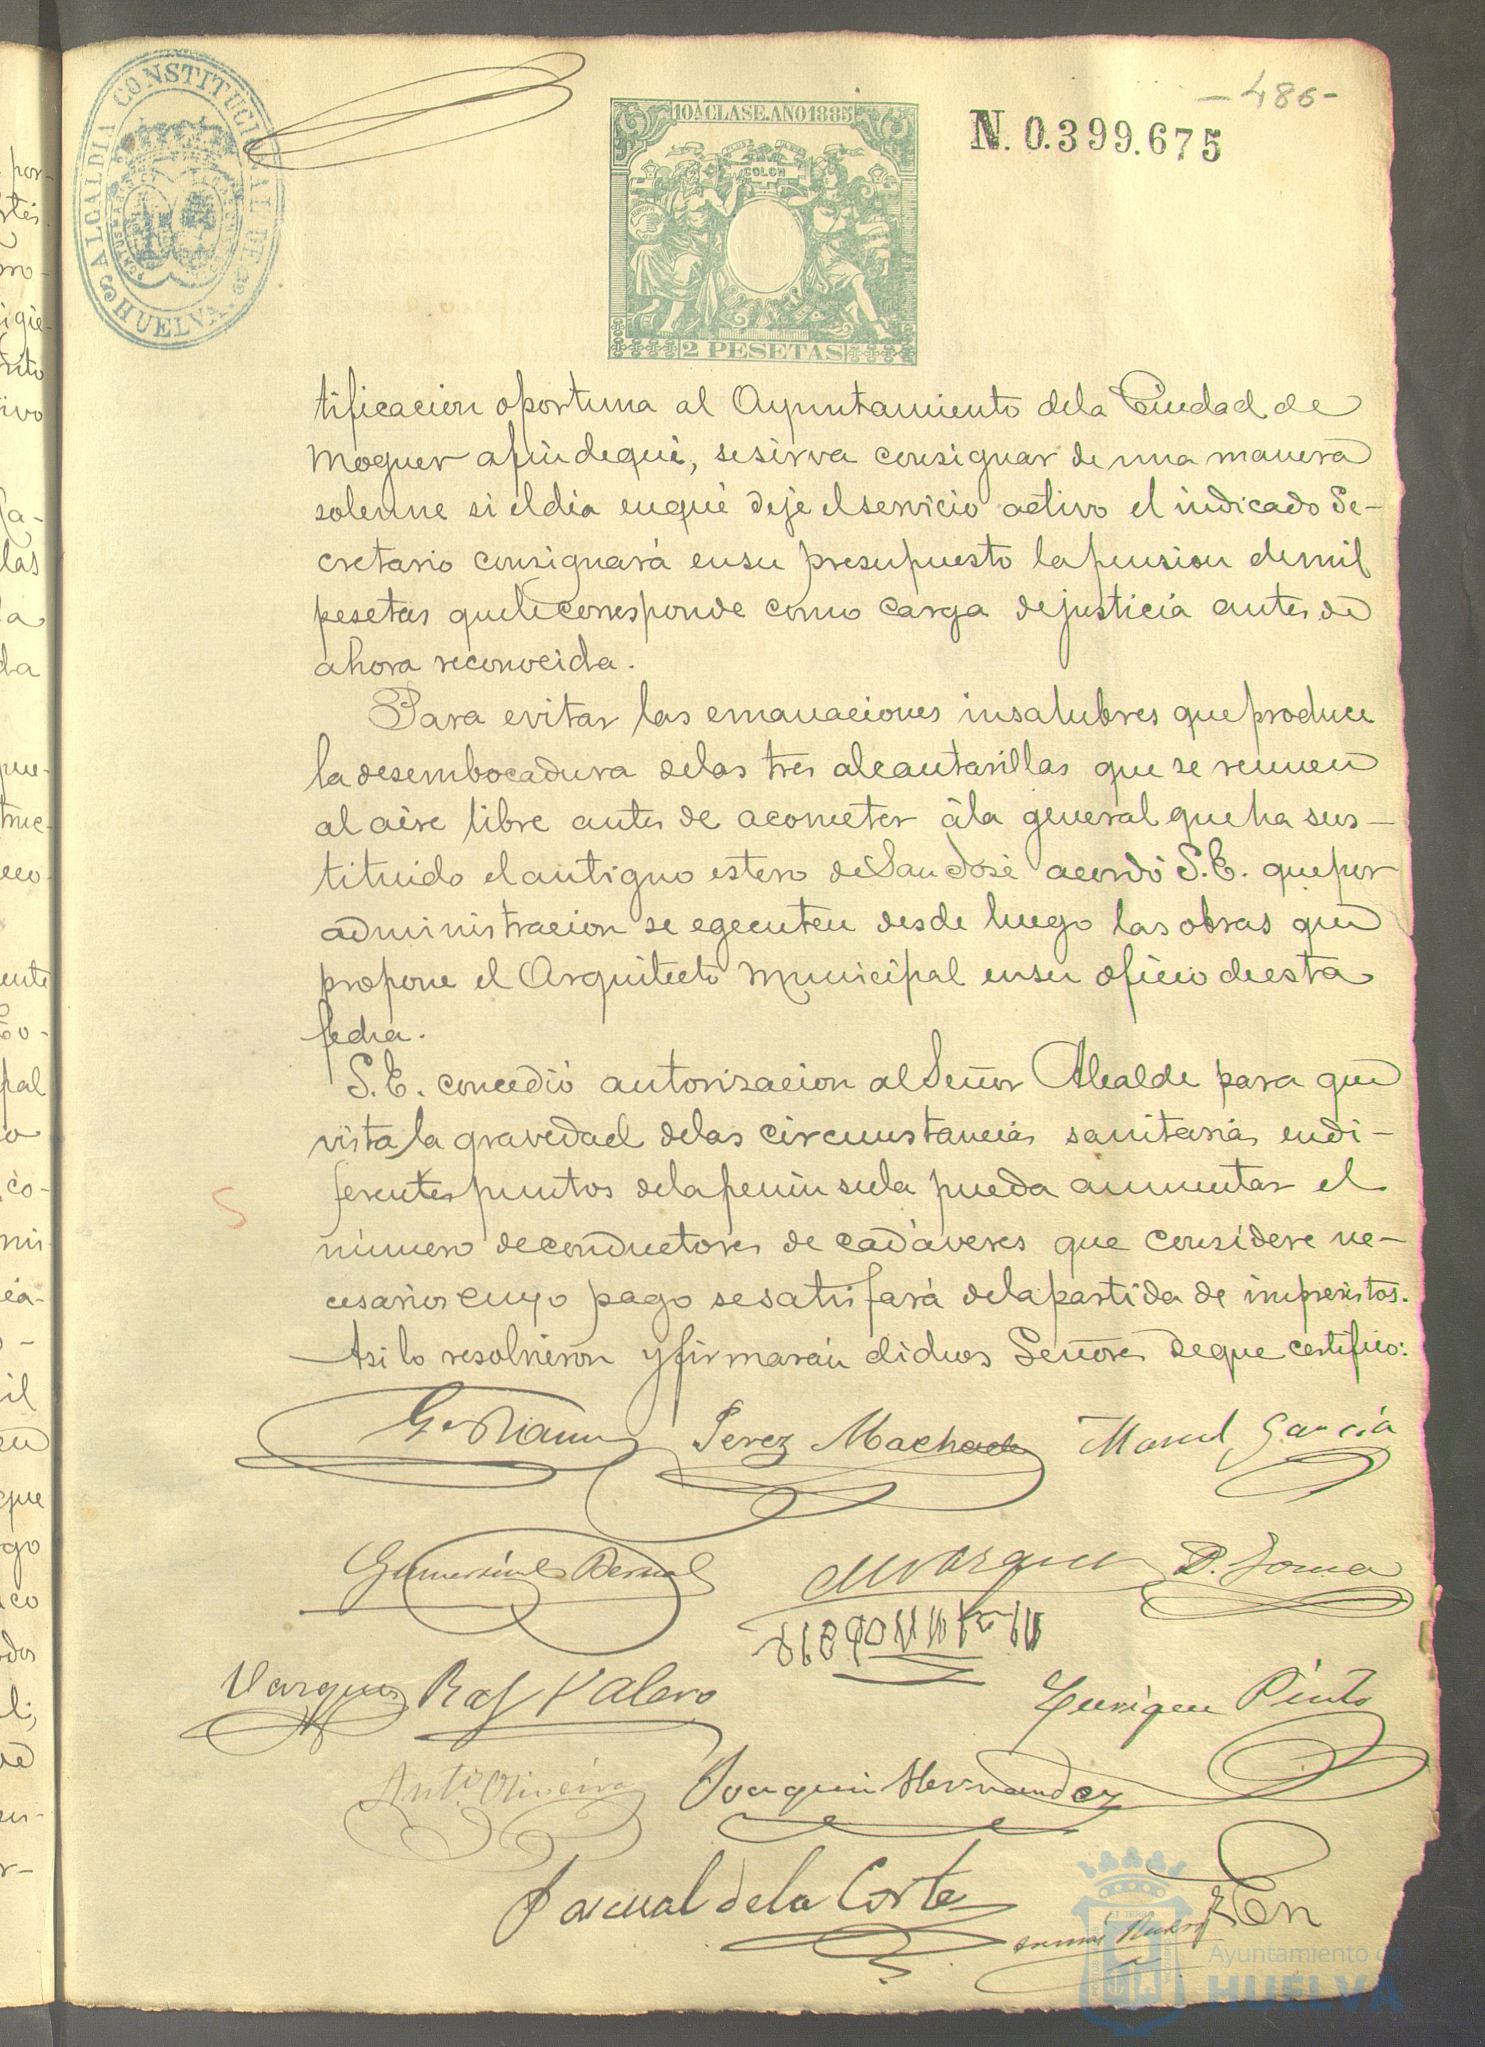 -486-
ALCALDIA CONSTITUCIONAL DE
HUELVA.
10A CLASE. AÑO 1885
2 PESETAS
N. 0.399.675
tificacion oportuna al Ayuntamiento dela Ciudad de
Moguer afin deque, sesirva consignar de una manera
solenne si eldia enque deje elservicio activo el indicado Se-
cretario consignará ensu presupuesto la pension demil
pesetas quele corresponde como carga dejusticia antes de
ahora reconocida.
Para evitar las emanaciones insalubres que produce
la desembocadura delas tres alcantarillas que se reunen
al aire libre antes de acometer àla general que ha sus-
tituido el antiguo estero de San José acordó S.E. que por
administracion se egecuten desde luego las obras que
propone el Arquitecto Municipal ensu oficio deesta
fecha.
S.E. concedió autorizacion al Señor Alcalde para que
vista la gravedad delas circunstancias sanitarias endi-
ferentes puntos dela peninsula pueda aumentar el
número deconductores de cadáveres que considere ne-
cesarios cuyo pago sesatisfará dela partida de imprevistos.
Asi lo resolvieron y firmarán dichos Señores deque certifico:
Perez Machado
Manuel Garcia
Gumersindo Bernal
M Vazquez
Vazquez
Raf Valero
Enrique Pinto
Ant.º Oliveira
Joaquin Hernandez
Pascual dela Corte
En
Ayuntamiento de
HUELVA